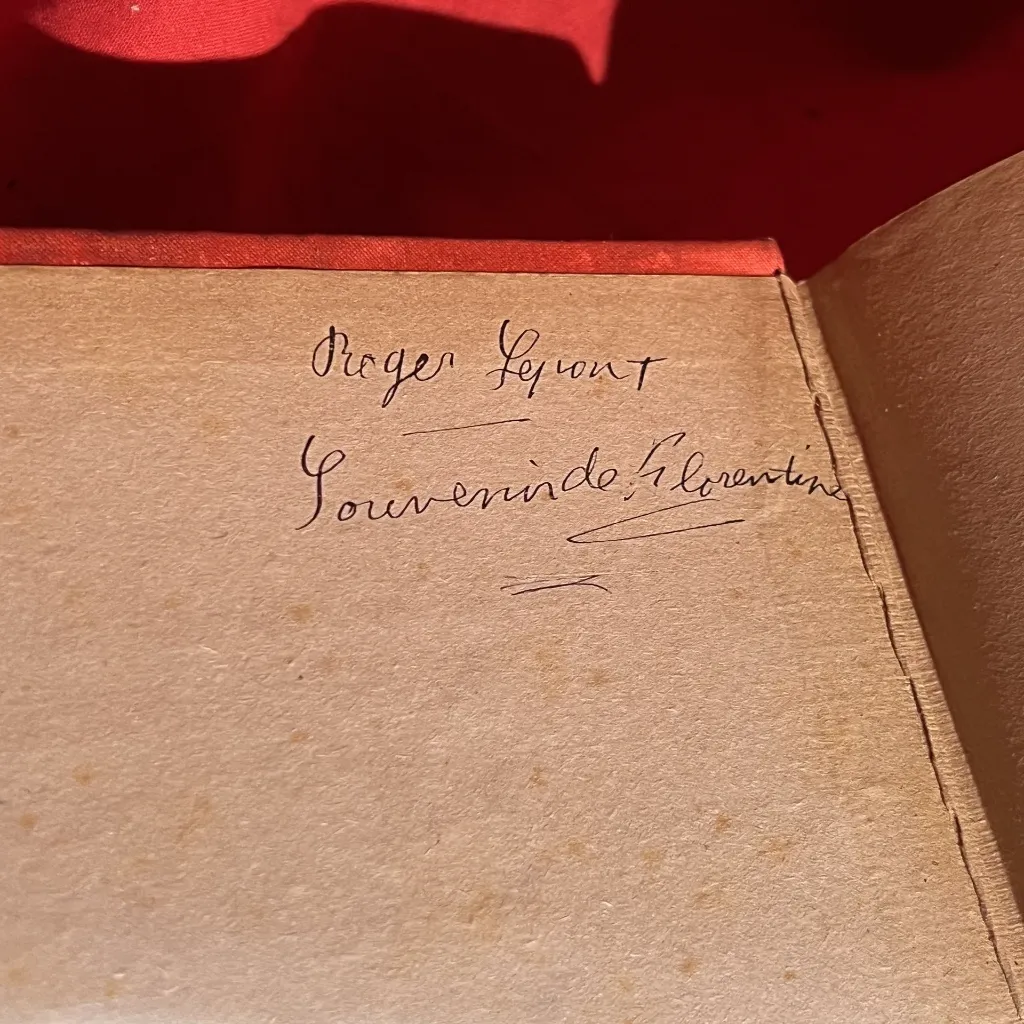 Roger Lepont
Souvenir de Florentine